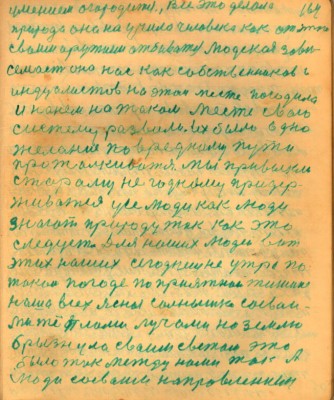 умением огородит, все это делала
164
природа она научила человека как от этого
своим другим отбывать людская зави
симость она нас как собственников и
индусмастов на этом месте посадила
и начем на таком месте свою
систему развили. Их было одно
желание по вредному пути
проталкиватя. мы привыкли
старому не годному придер
живатся уже люди как люди
знают природу так как это
следует. Для наших людей вот
этих наших сегоднешне утро по
такой погоде по приятной тишине
наша всех ясная солнышка своеи
ми теплами лучами на землю
брызнула своим светом это
было так между нами так А
люди своеими направлением